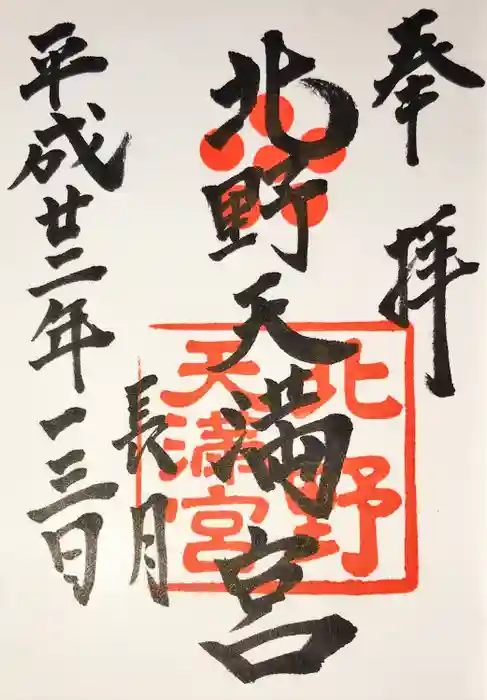 奉拝
北野天満宮
北野
天満宮
平成廿二年
長月
一三日